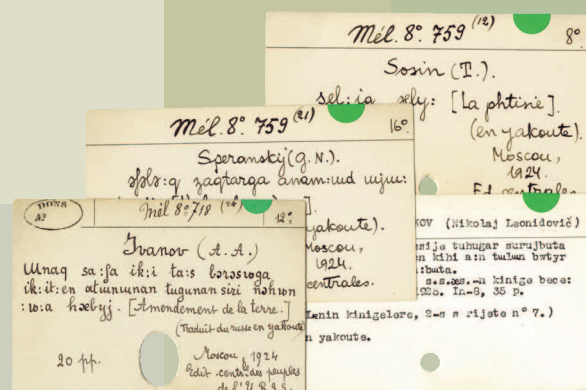 Mél. 8° 759 (12)
8°
Sosin (T.).
sel:ia sely: [La phtisie].
(en yakoute).
Moscou,
1924.
Ed. centrales
Mél. 8° 759 (21)
16°
Speranskij (G. N.).
zaqtarga anam:
].
yakoute).
Moscou,
1924.
centrales.
DONS
N°
Mél 8° 718
12°
Ivanov (A. A.)
Unaq sa:ʃa ik:i ta:s
ik:it:en atuunuunan tugunan siri nɔhɔn
hæbyj. [Amendement de la terre.]
(Traduit du russe en yakoute)
20 pp.
Moscou, 1924
Edit. cents. des peuples
de l'U.R.S.S.
KOV (Nikolaj Leonidovič)
sije tuhugar surujbuta
n kihi a:n tulum bwtyr
:buta.
s.s.æs.-n kinige bece:
925. In-8, 35 p.
Lenin kinigelere, 2-s s rijete n° 7.)
n yakoute.